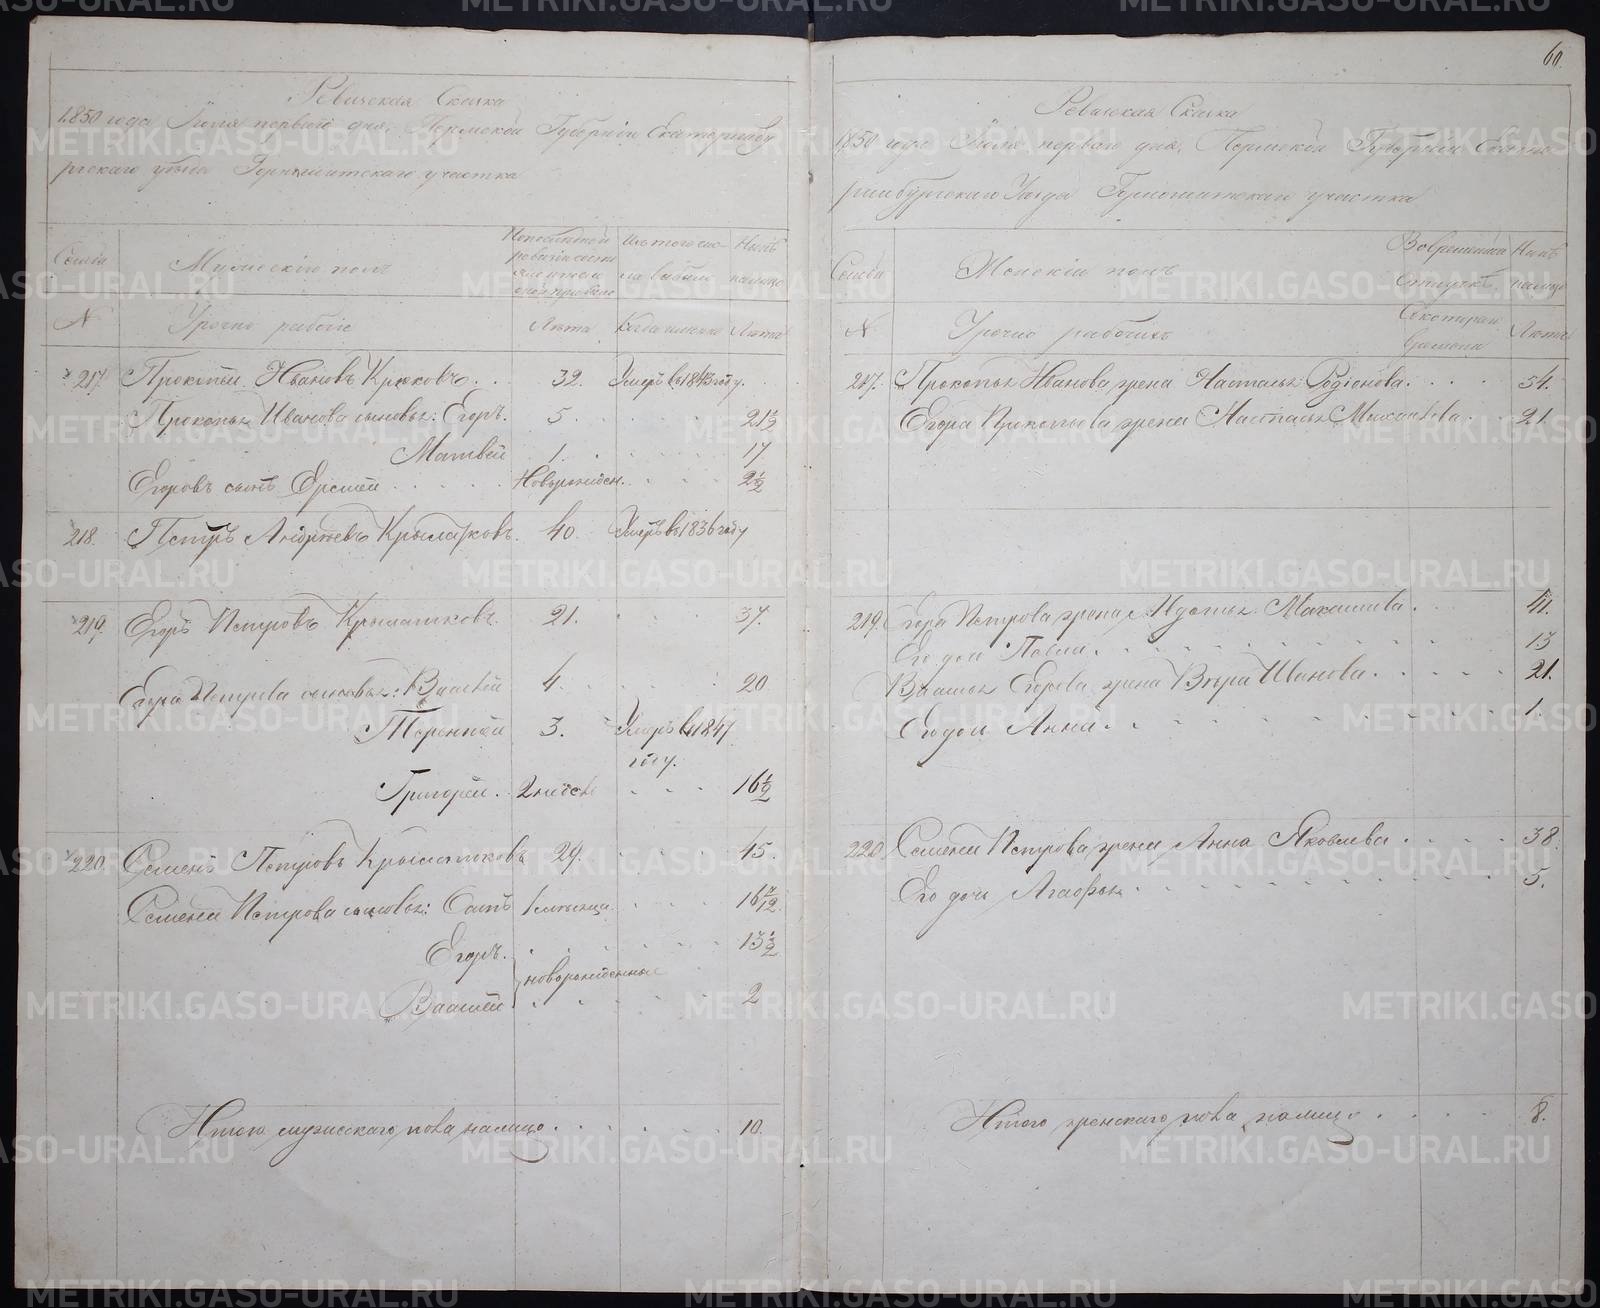 60.
Ревизская Сказка
1850 года Июля первого дня, Пермской Губернии Екатеринбу
ргскаго уезда Горнощитскаго участка
Семьи
Мужескій полъ
По последней ревизіи состояло и после оной прибыло
Изъ того числа выбыло
Ныне на лицо
№
Урочно рабочіе
Лета
Когда именно
Лета
217. Прокопьи Ивановъ Крюковъ . . 32. Умеръ въ 1843 году.
Прокопья Иванова сыновья: Егоръ. 5 . . . . 21½
Матвей 1. . . . . 17
Егоровъ сынъ Ерсией . . . . . Новорожден. . . . 2½
218. Петръ Андреевъ Крылатковъ. 40. Умеръ въ 1836 году
219. Егоръ Петровъ Крылатковъ. 21. . . . 37.
Егора Петрова сыновья: Василей 4. . . . 20
Терентей 3. Умеръ въ 1847
году.
Григорей. 2 недель . . . 16½
220. Семенъ Петровъ Крылатковъ 29. . . . 45.
Семена Петрова сыновья: 1 месяца. . . .
Егоръ. . . . . . 13½
новорожденные
Василей . . . . . 2
Итого мужескаго пола на лицо. . . . . . 10.
Ревизская Сказка
1850 года Июля первого дня, Пермской Губерніи Екате
ринбургскаго Уезда Горнощитскаго участка
Семьи
Женскій полъ
Во временной отлучке
Ныне на лицо
№
Урочно рабочихъ
Съ котораго времени
Лета
217. Прокопья Иванова жена Настасья Родіонова. . . . 54.
Егора Прокопьева жена Настасья Михайлова . . 21.
219. Егора Петрова жена Максимова . . 41.
Его дочь . . . . . . 13
Василья Егорова жена Вера Иванова . . . . . 21.
Его дочь Анна . . . . . . 1.
220 Семена Петрова жена Анна Яковлева . . . . 38.
Его дочь Агафья . . . . . . 5.
Итого женскаго пола на лицо . . . . 8.
METRIKI.GASO-URAL.RU